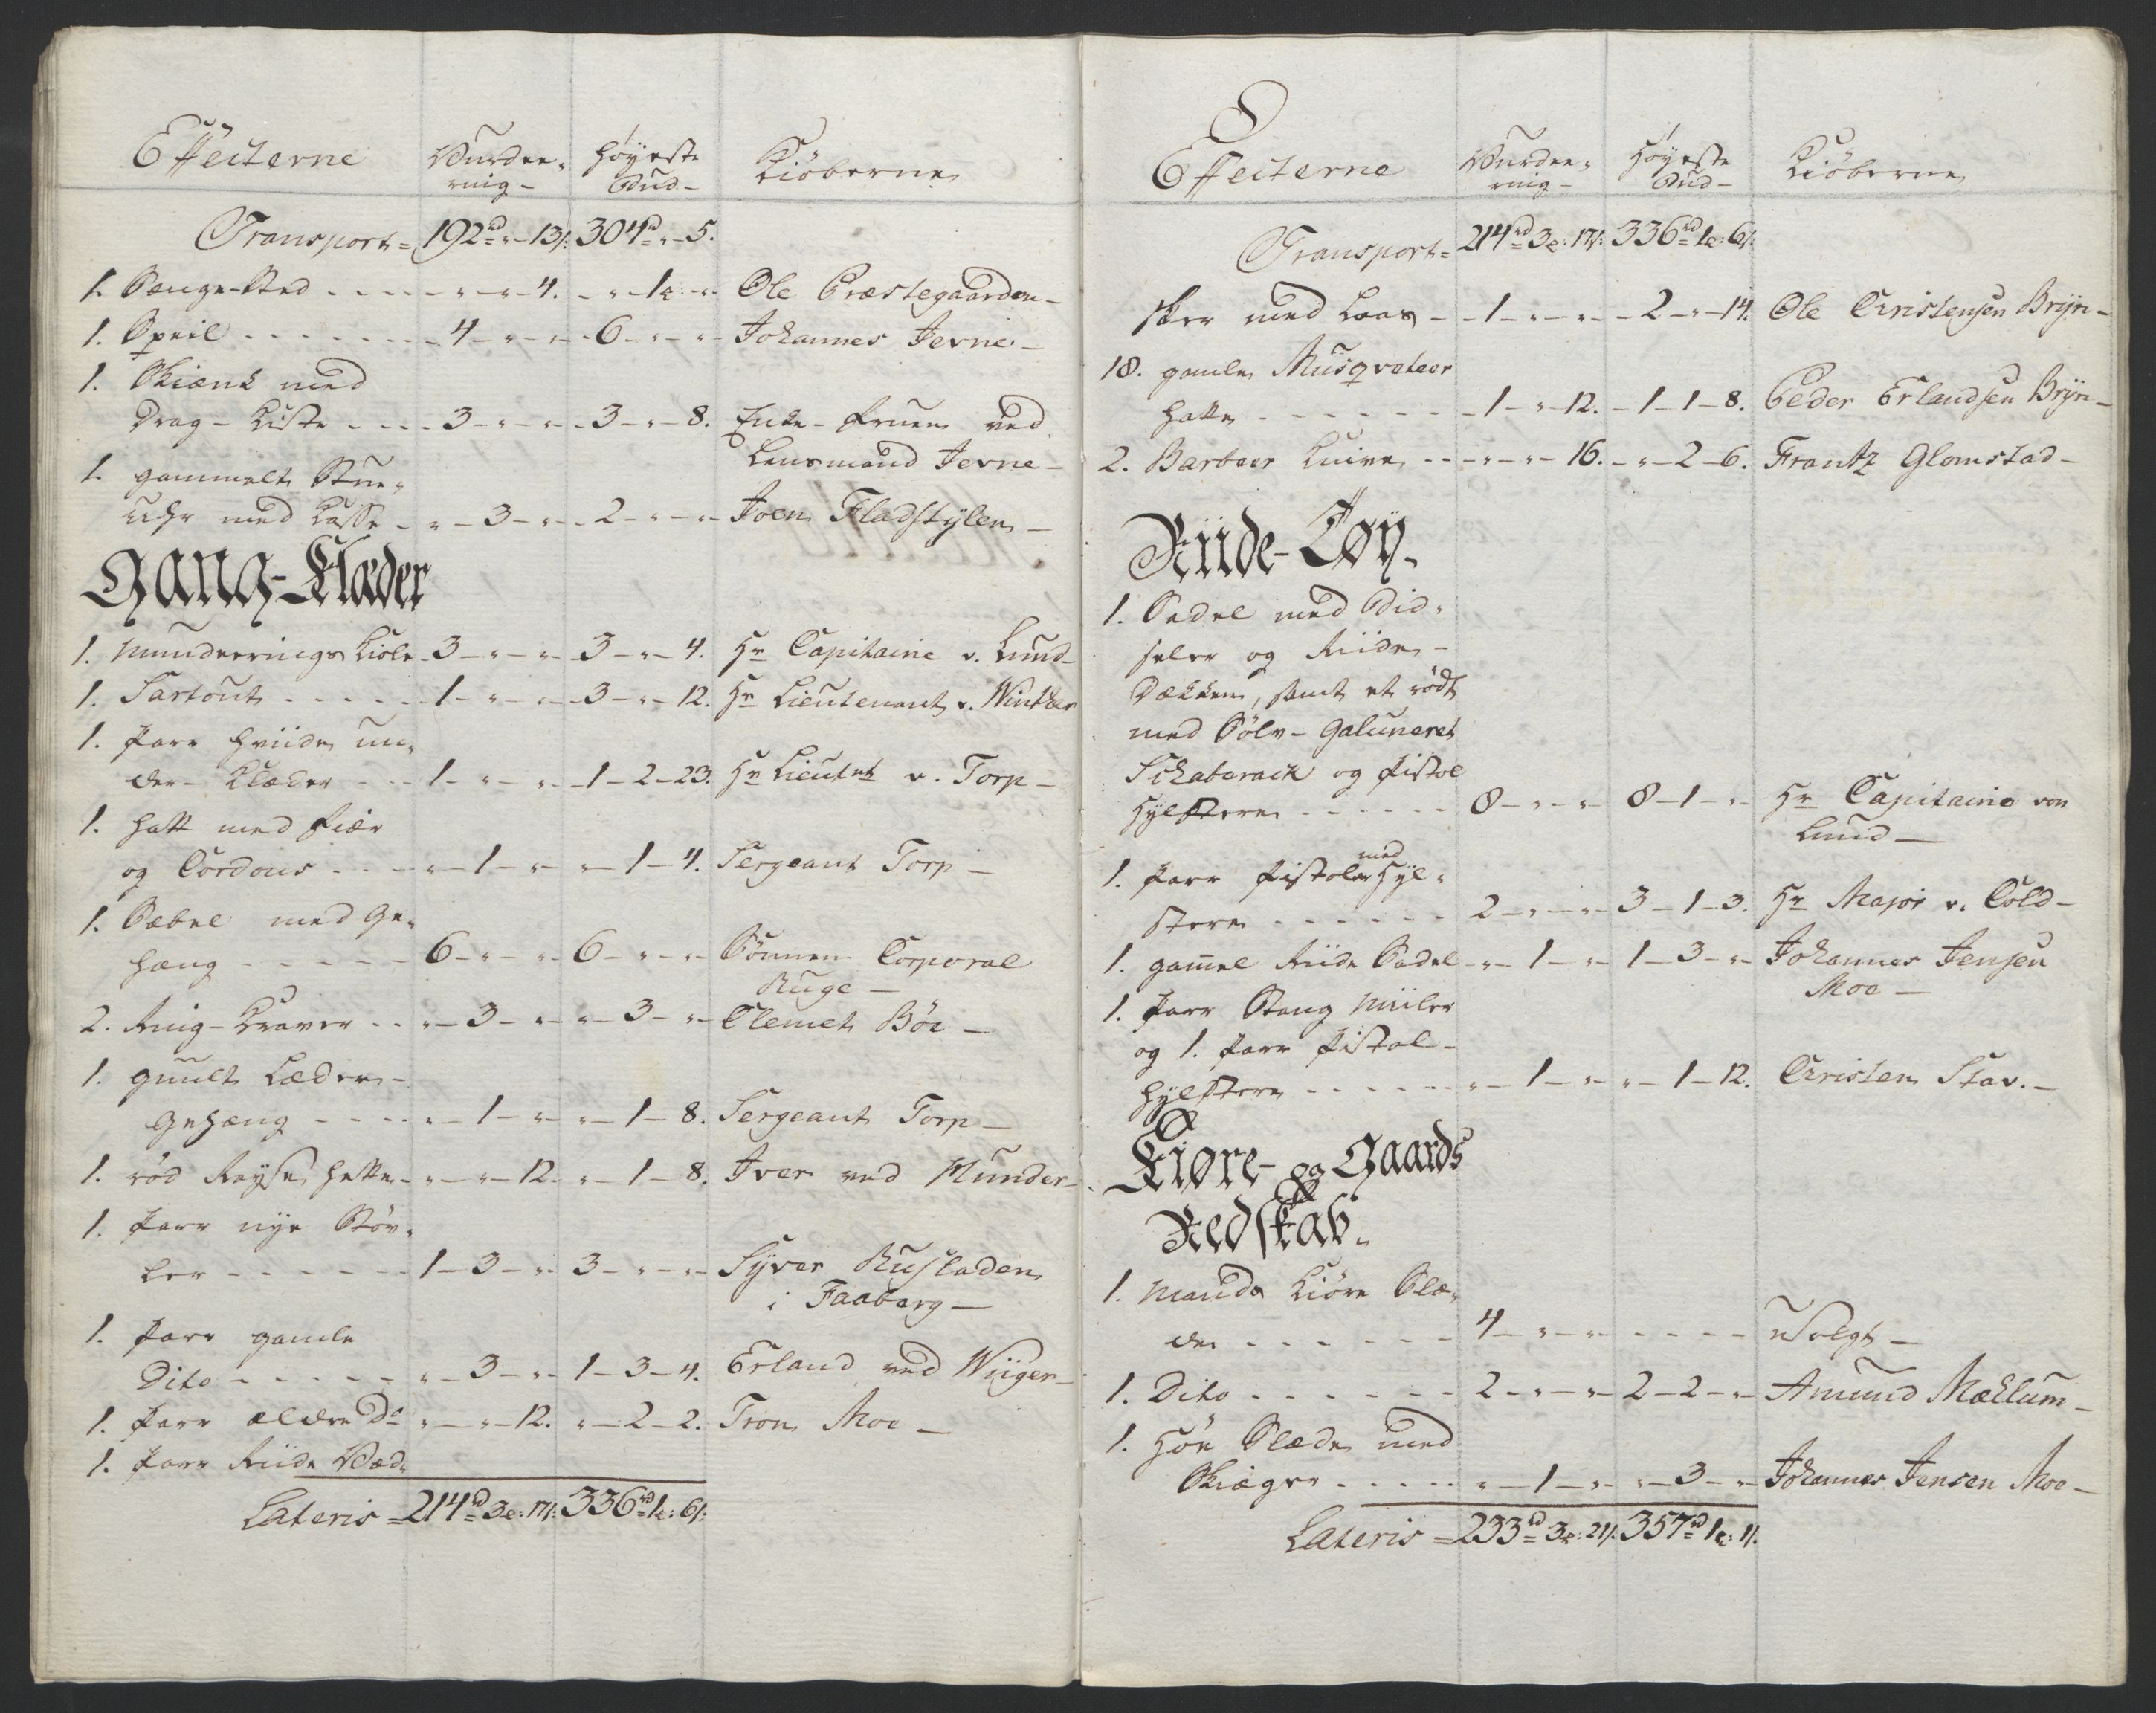 Effecterne Vurdee- Høyeste Kiöberne
ring- Bud-
Transport= 192rd "-13s: 304rd "-5.
1. Senge-Sted - - - - "-"-4. - "-1-" Ole Præstegaarden-
1. Speil - - - - - 4-"-" 6-"-" Johannes Jevne-
1. Skiænk med
Drag-Kiste - - - 3-"-" 3-"-8. Enke-Fruen ved
Lensmand Jevne-
1. gammelt Stue-
Uhr med Kasse - "-3-" 2-"-" Joen Fladstylen-
Gang-Klæder
1. Munderings Kiole 3-"-" 3-"-4. Hr Capitaine v. Lund-
1. Sartout - - - - 1-"-" 3-"-12. Hr Lieutenant v. Winther
1. Parr hviide un-
der-Klæder - - 1-"-" 1-2-23. Hr Lieutnt v. Torp-
1. Hatt med Fiær
og Cordons - - - "-1-" "-1-4. Sergeant Torp-
1. Sabel med Ge-
hæng - - - - - 6-"-" 6-"-" Sönnen Corporal
Ruge-
2. Ring-Kraver - - "-3-" "-3-" Clemet Böe-
1. guult Læder-
Gehæng - - - - "-1-" "-1-8. Sergeant Torp-
1. rød Reyse hette - "-"-12. "-1-8. Iver ved Hunder-
1. Parr nye Støv-
ler - - - - - - 1-3-" 3-"-" Syver Rusladen
i Faaberg-
1. Parr gamle
Dito - - - - - "-3-" 1-3-4. Erland ved Wiiger-
1. Parr ældre Do "-"-12. "-2-2. Tron Moe-
1. Parr Riide Væd-
Lateris = 214rd 3o: 17s: 336rd 1o: 6s:
Effecterne Vurdee- Høyeste Kiöberne
ring- Bud-
Transport= 214rd 3o: 17s: 336rd 1o: 6s:
sker med Laas - 1-"-" 2-"-14. Ole Christensen Bryn-
18. gamle Musqveteer
hatte - - - - - 1-"-12. 1-1-8. Peder Erlandsen Bryn-
2. Barbeer Knive - - "-"-16. "-2-6. Frantz Glomstad-
Riide-Tøy.
1. Sadel med Bid-
seler og Riide-
Dækken, samt et rødt
med Sölv-Galuneret
Schaberack og Pistol
Hylstere - - - - - 8-"-" 8-1-" Hr Capitaine von
Lund-
1. Parr Pistoler med Hyl-
stere - - - - - - 2-"-" 3-1-3. Hr Major v. Cold-
1. gamel Riide Sadel "-1-" 1-3-" Johannes Jensen
Moe-
1. Parr Stang Miiler
og 1. Parr Pistol-
hylstere - - - - - "-1-" "-1-12. Christen Stav.-
Kiøre- og Gaards
Redskab.
1. Mands Kiöre Slæ-
de - - - - - - 4-"-" - - - - Usolgt-
1. Dito - - - - - - 2-"-" 2-2-" Amund Mæhlum-
1. Höe Slæde med
Skiæger - - - - - "-1-" "-3-" Johannes Jensen Moe-
Lateris = 233rd 3o: 21s: 357rd 1o: 1s.